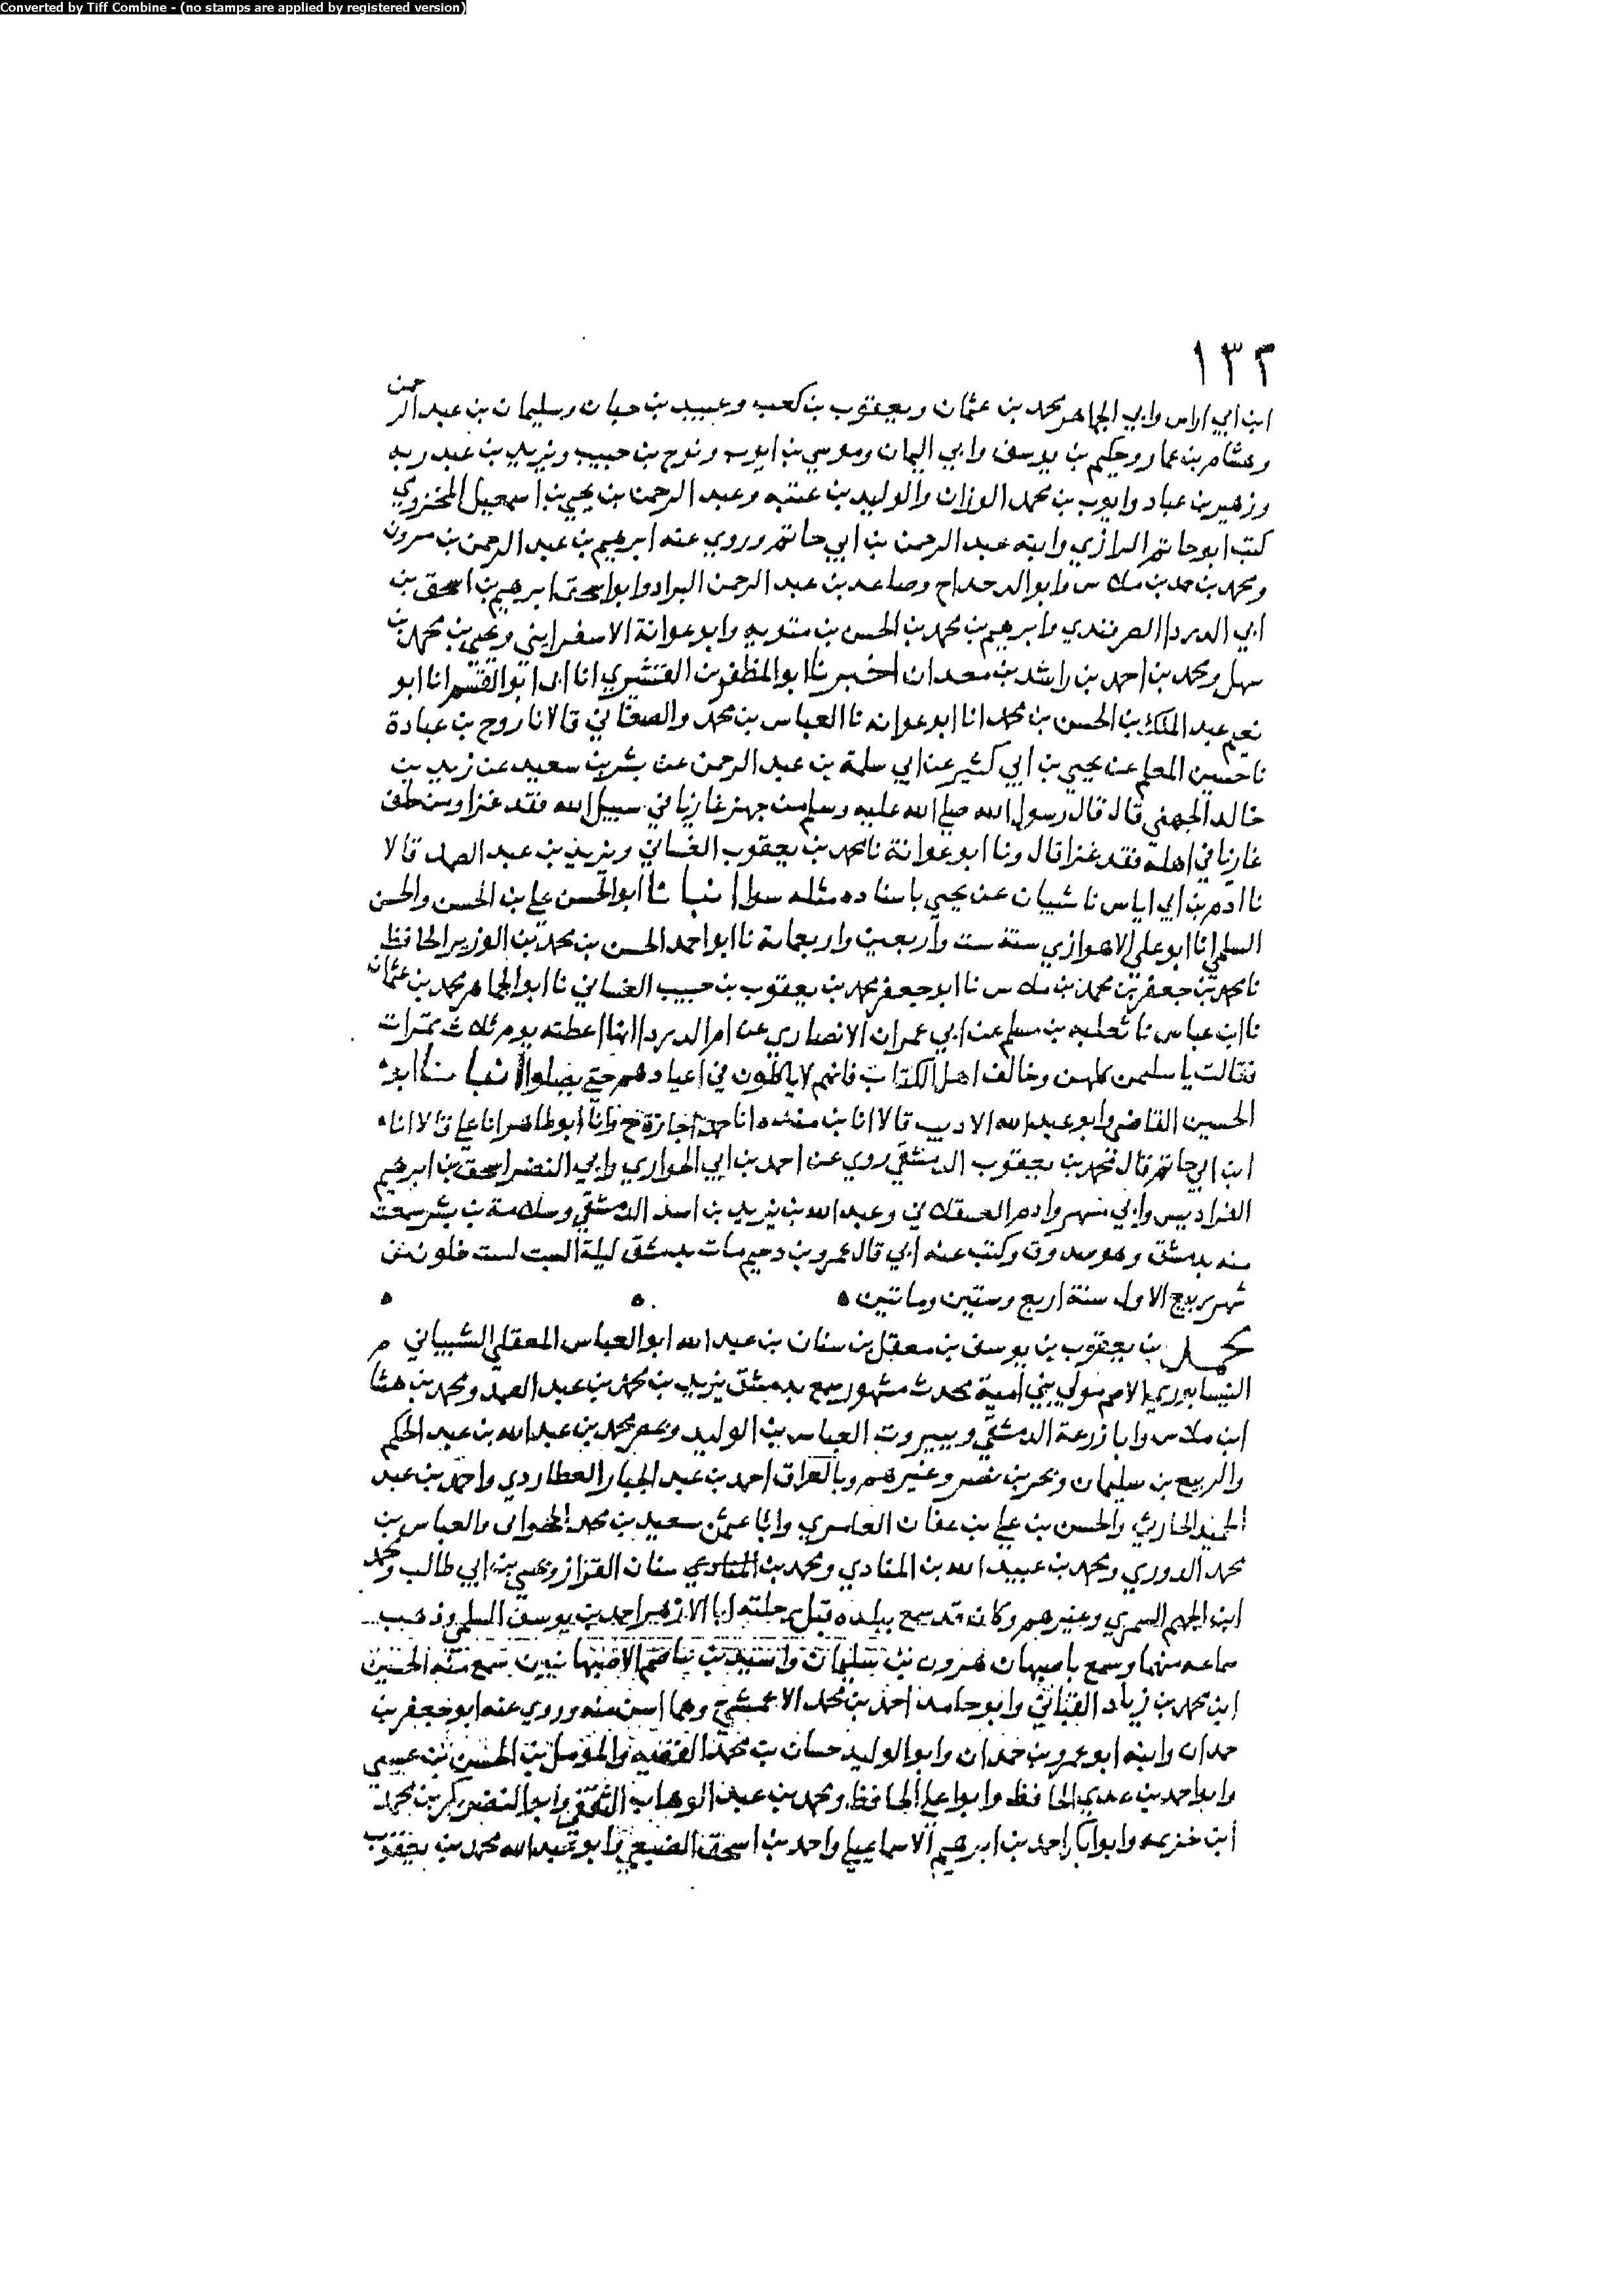 Converted by Tiff Combine - (no stamps are applied by registered version)
١٣٢
ابن ابي اياس وابي الجماهر محمد بن عثمان ويعقوب بن كعب وعبيد بن حبان وسليمان بن عبد الرحمن
وهشام بن عمار وحكيم بن يوسف وابي اليمان وموسي بن ايوب ونوح بن حبيب ويزيد بن عبد ربه
وزهير بن عباد وايوب بن محمد الوزان والوليد بن عتبه وعبد الرحمن بن يحيي بن اسمعيل المخزومي
كتب ابو حاتم الرازي وابنه عبد الرحمن بن ابي حاتم وروي عنه ابرهيم بن عبد الرحمن بن مرون
ومحمد بن محمد بن ملاس وابو الدحداح وصاعد بن عبد الرحمن البراد وابو اسحق ابرهيم بن اسحق بن
ابي الدردا الصرفندي وابرهيم بن محمد بن الحسن بن متويه وابو عوانة الاسفرايني ويحيي بن محمد بن
سهل ومحمد بن احمد بن راشد بن معدان اخبرنا ابو المظفر بن القشيري انا ابو القسم انا ابو
نعيم عبد الملك بن الحسن بن محمد انا ابو عوانه نا العباس بن محمد والصغاني قالا نا روح بن عبادة
نا حسين المعلم عن يحيي بن ابي كثير عن ابي سلمة بن عبد الرحمن عن بشر بن سعيد عن زيد بن
خالد الجهني قال قال رسول الله صلي الله عليه وسلم من جهز غازيا في سبيل الله فقد غزا ومن خلف
غازيا في اهله فقد غزا قال ونا ابو عوانة نا محمد بن يعقوب الغساني ويزيد بن عبد الصمد قالا
نا ادم بن ابي اياس نا شيبان عن يحيي باسناده مثله سوا انبانا ابو الحسن علي بن الحسن والحسن
السلمي انا ابو علي الاهوازي ستة ست واربعين واربعماية نا ابو احمد الحسن بن محمد بن الوزير الحافظ
نا محمد بن جعفر بن محمد بن ملاس نا ابو جعفر محمد بن يعقوب بن حبيب الغساني نا ابو الجماهر محمد بن عثمان
نا ابن عباس نا ثعلبه بن مسلم عن ابي عمران الانصاري عن ام الدردا انها اعطته يوم ثلاث تمرات
فقالت يا سليمن كلهن وخالف اهل الكتاب فانهم لا ياكلون في اعيادهم حتي يصلوا انبانا ابو
الحسين القاضي وابو عبد الله الاديب قالا انا بن منده انا حمد اجازة ح وانا ابو طاهر انا علي قالا انا
ابن ابي حاتم قال محمد بن يعقوب الدمشقي روي عن احمد بن ابي الحواري وابي النضر اسحق بن ابرهيم
الفراديس وابي مسهر وادم العسقلاني وعبد الله بن يزيد بن اسد الدمشقي وسلامة بن بشر سمعت
منه بدمشق وهو صدوق وكتب عنه ابي قال عمرو بن دحيم مات بدمشق ليلة السبت لست خلون من
شهر ربيع الاول سنة اربع وستين وماتين
محمد بن يعقوب بن يوسف بن معقل بن سنان بن عبد الله ابو العباس المعقلي الشيباني م
النيسابوري الاصم مولي بني امية محدث مشهور سمع بدمشق يزيد بن محمد بن عبد الصمد ومحمد بن هشا
ابن ملاس وابا زرعة الدمشقي وببيروت العباس بن الوليد وبمصر محمد بن عبد الله بن عبد الحكم
والربيع بن سليمان وبحر بن نصر وغيرهم وبالعراق احمد بن عبد الجبار العطاردي واحمد بن عبد
الحميد الحارثي والحسن بن علي بن عفان العامري وابا عثمن سعيد بن محمد والعباس بن
محمد الدوري ومحمد بن عبيد الله بن المنادي ومحمد بن سنان القزاز ويحيي بن ابي طالب ومحمد
ابن الجهم السمري وغيرهم وكان قد سمع ببلده قبل رحلته ابا الازهر واحمد بن يوسف السلمي وذهب
سماعه منهما وسمع باصبهان هرون بن سليمان واسيد بن عاصم الاصبهانيين سمع منه الحسين
ابن محمد بن زياد القباني وابو حامد احمد بن محمد الاعمشي وهما اسن منه وروي عنه ابو جعفر بن
حمدان وابنه ابو عمرو بن حمدان وابو الوليد حسان بن محمد الفقيه والمؤمل بن الحسن بن عيسي
وابو احمد بن عدي الحافظ وابوا علي الحافظ ومحمد بن عبد الوهاب الثقفي وابو النضر بكر بن محمد
ابن خزيمه وابوا بكر احمد بن ابرهيم الاسماعيلي واحمد بن اسحق الضبعي وابو عبد الله محمد بن يعقوب